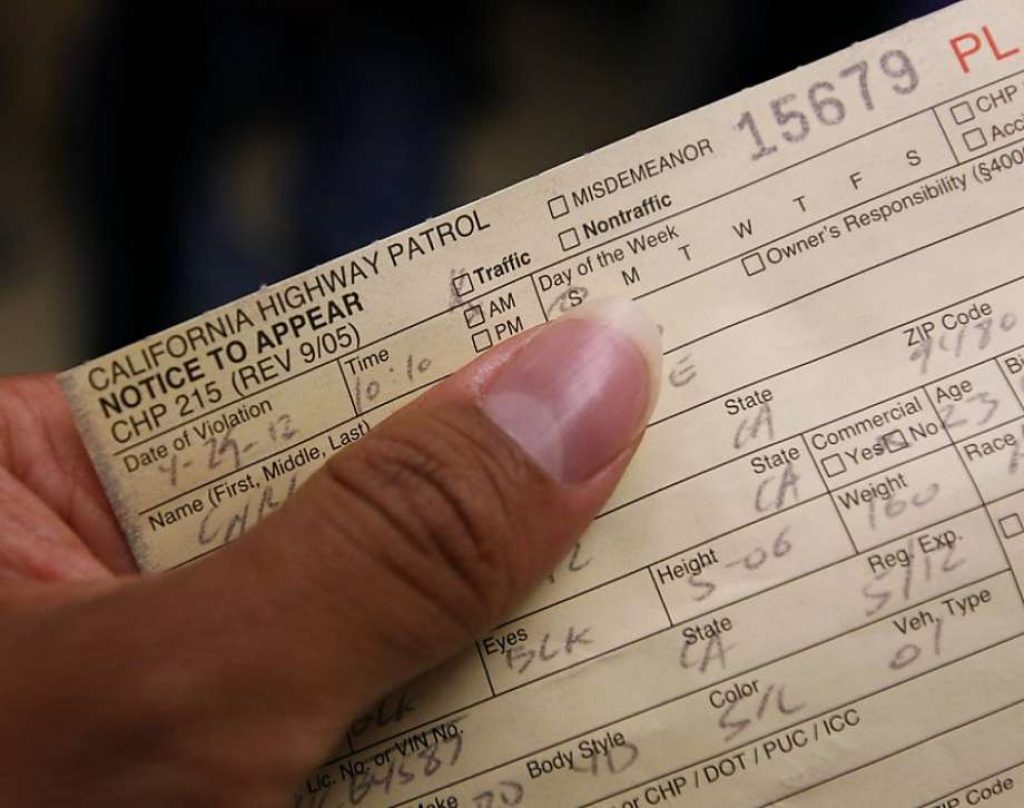 CALIFORNIA HIGHWAY PATROL
NOTICE TO APPEAR
CHP 215 (REV 9/05)
MISDEMEANOR
15679
PL
Traffic
Nontraffic
CHP
Date of Violation
4-29-12
Time
10:10
AM
PM
Day of the Week
S M T W T F S
Owner's Responsibility (§400
Name (First, Middle, Last)
E
State
CA
ZIP Code
State
CA
Commercial
Yes No
Age
23
Height
5-06
Weight
160
Race
Eyes
BLK
BLK
State
CA
Reg/Exp.
5/12
Lic. No. or VIN No.
Body Style
4D
Color
SIL
Veh. Type
01
or CHP / DOT / PUC / ICC
Code